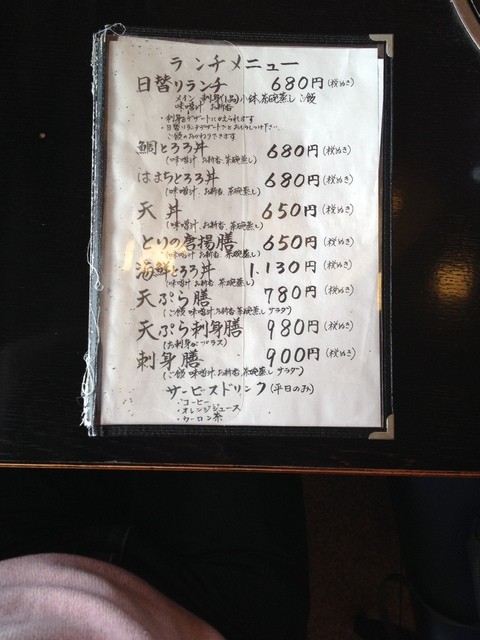 ランチメニュー
日替りランチ 680円(税ぬき)
メイン 刺身(1品)小鉢 茶碗蒸し ご飯
味噌汁 お新香
・刺身をデザートにかえられます
・日替りランチデザート
ご飯のおかわりできます
鯛とろろ丼 680円(税ぬき)
(味噌汁、お新香、茶碗蒸し)
はまちとろろ丼 680円(税ぬき)
(味噌汁、お新香、茶碗蒸し)
天丼 650円(税ぬき)
(味噌汁、お新香、茶碗蒸し)
とりの唐揚膳 650円(税ぬき)
(味噌汁 お新香 茶碗蒸し)
海鮮とろろ丼 1.130円(税ぬき)
(味噌汁 お新香 茶碗蒸し)
天ぷら膳 780円(税ぬき)
(ご飯 味噌汁 お新香 茶碗蒸し サラダ)
天ぷら刺身膳 980円(税ぬき)
(お刺身がプラス)
刺身膳 900円(税ぬき)
(ご飯 味噌汁 お新香 茶碗蒸し サラダ)
サービスドリンク(平日のみ)
・コーヒー
・オレンジジュース
・ウーロン茶